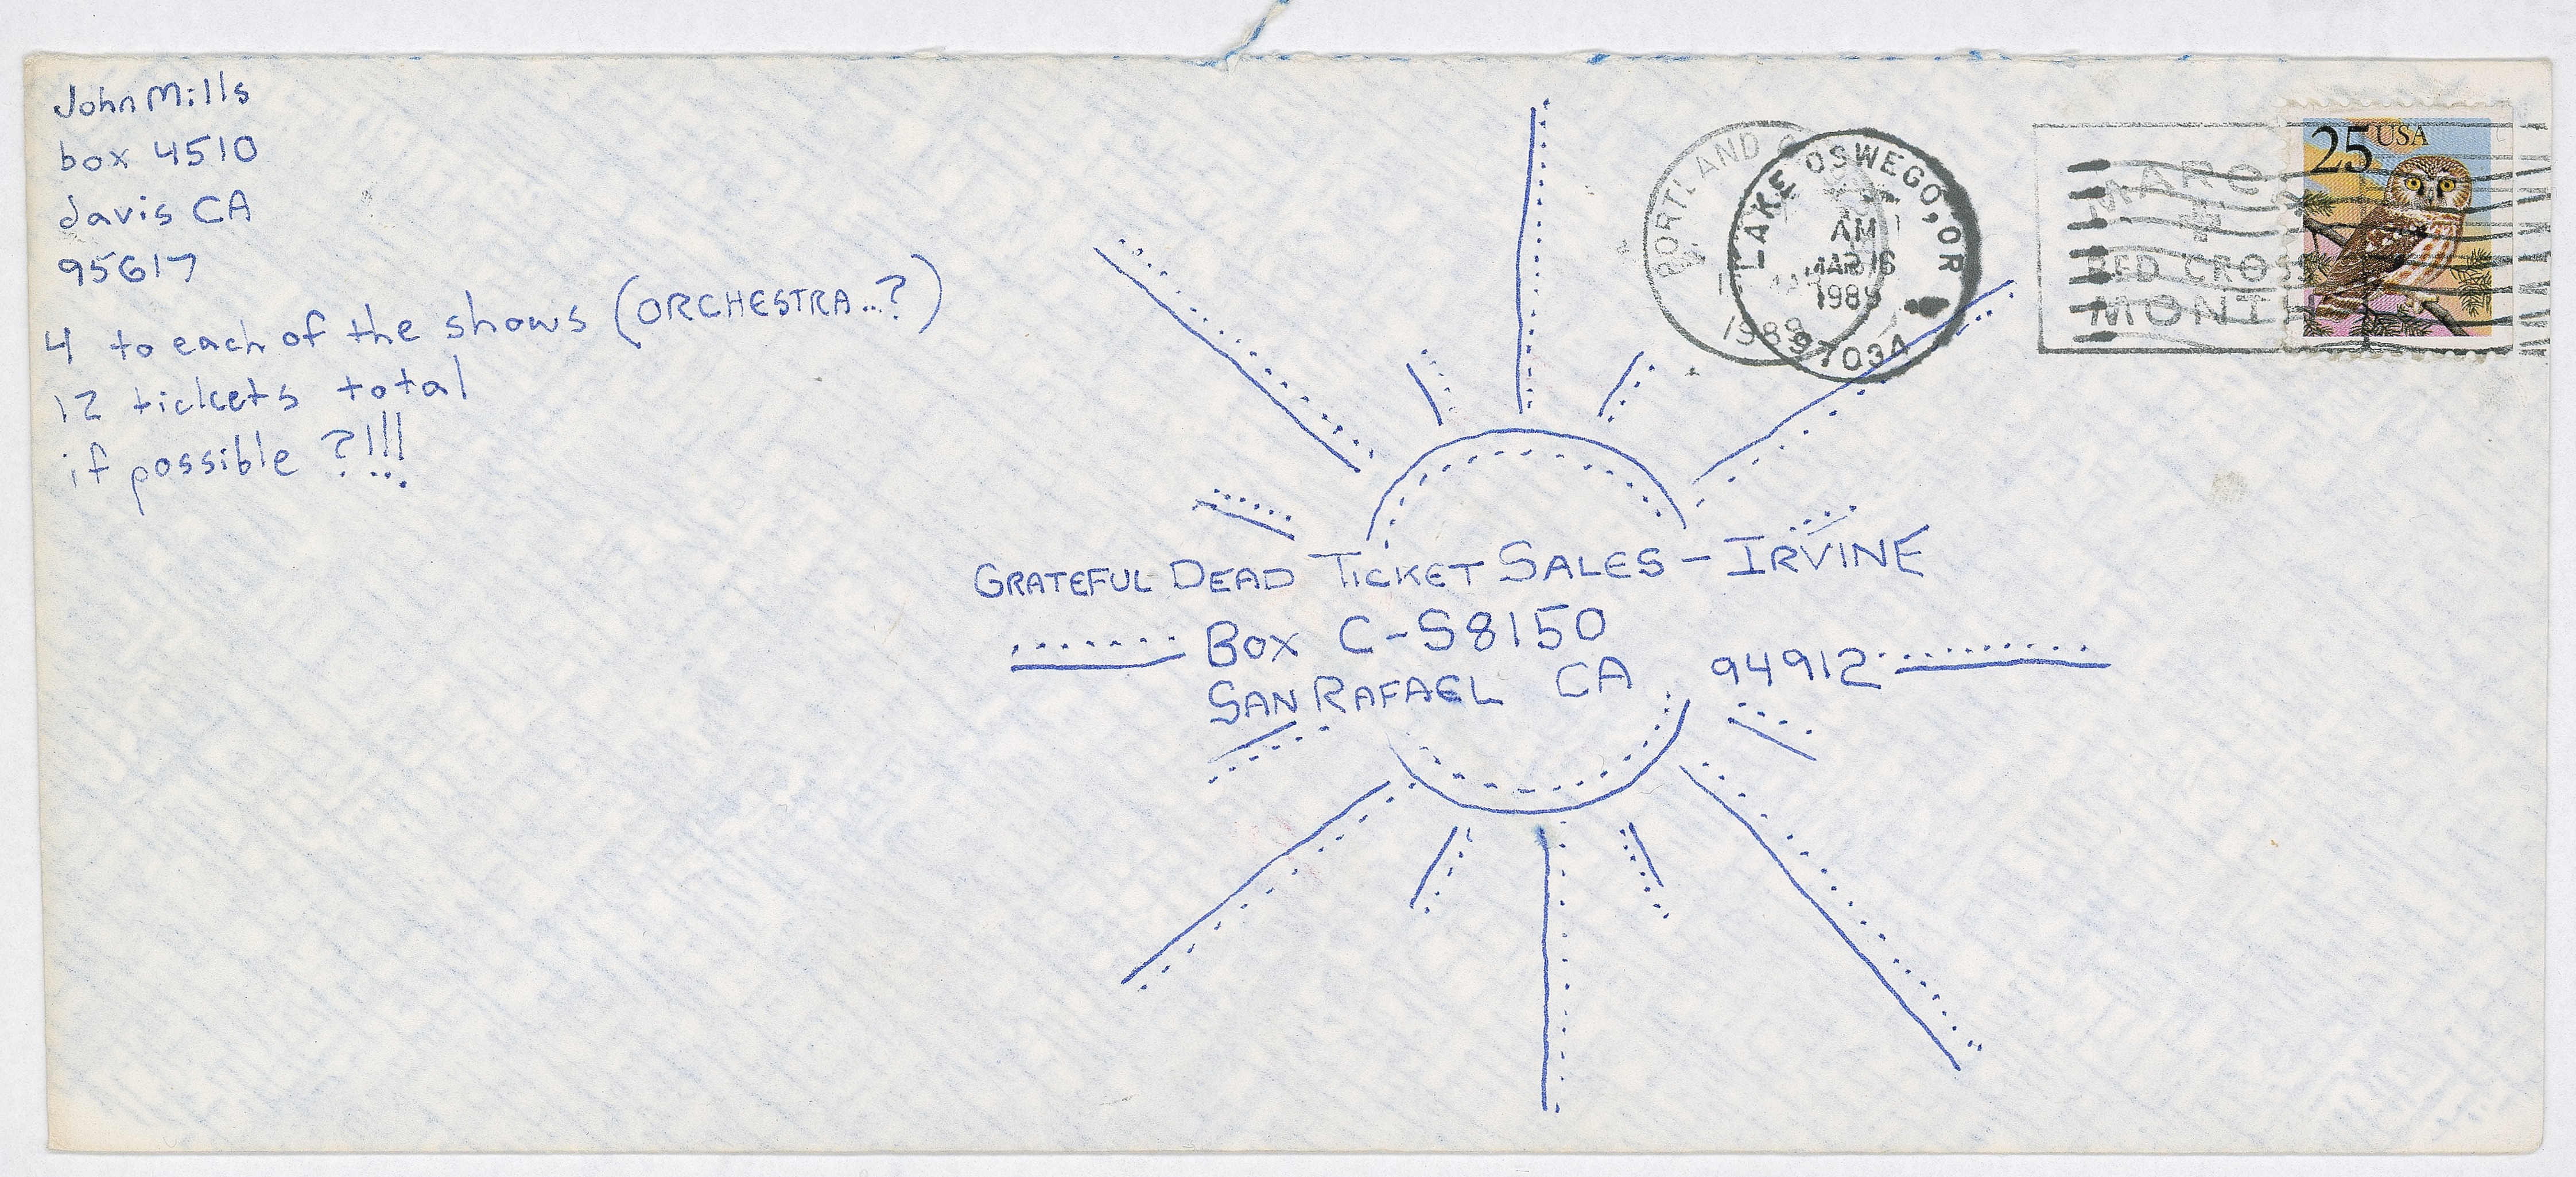 John Mills
box 4510
davis CA
95617
4 to each of the shows (ORCHESTRA..?)
12 tickets total
if possible ?!!!
PORTLAND
1989
LAKE OSWEGO, OR
AM
MAR 16
1989
97034
MARCH
RED CROSS
MONTH
25 USA
GRATEFUL DEAD TICKET SALES - IRVINE
BOX C-S8150
SAN RAFAEL CA 94912